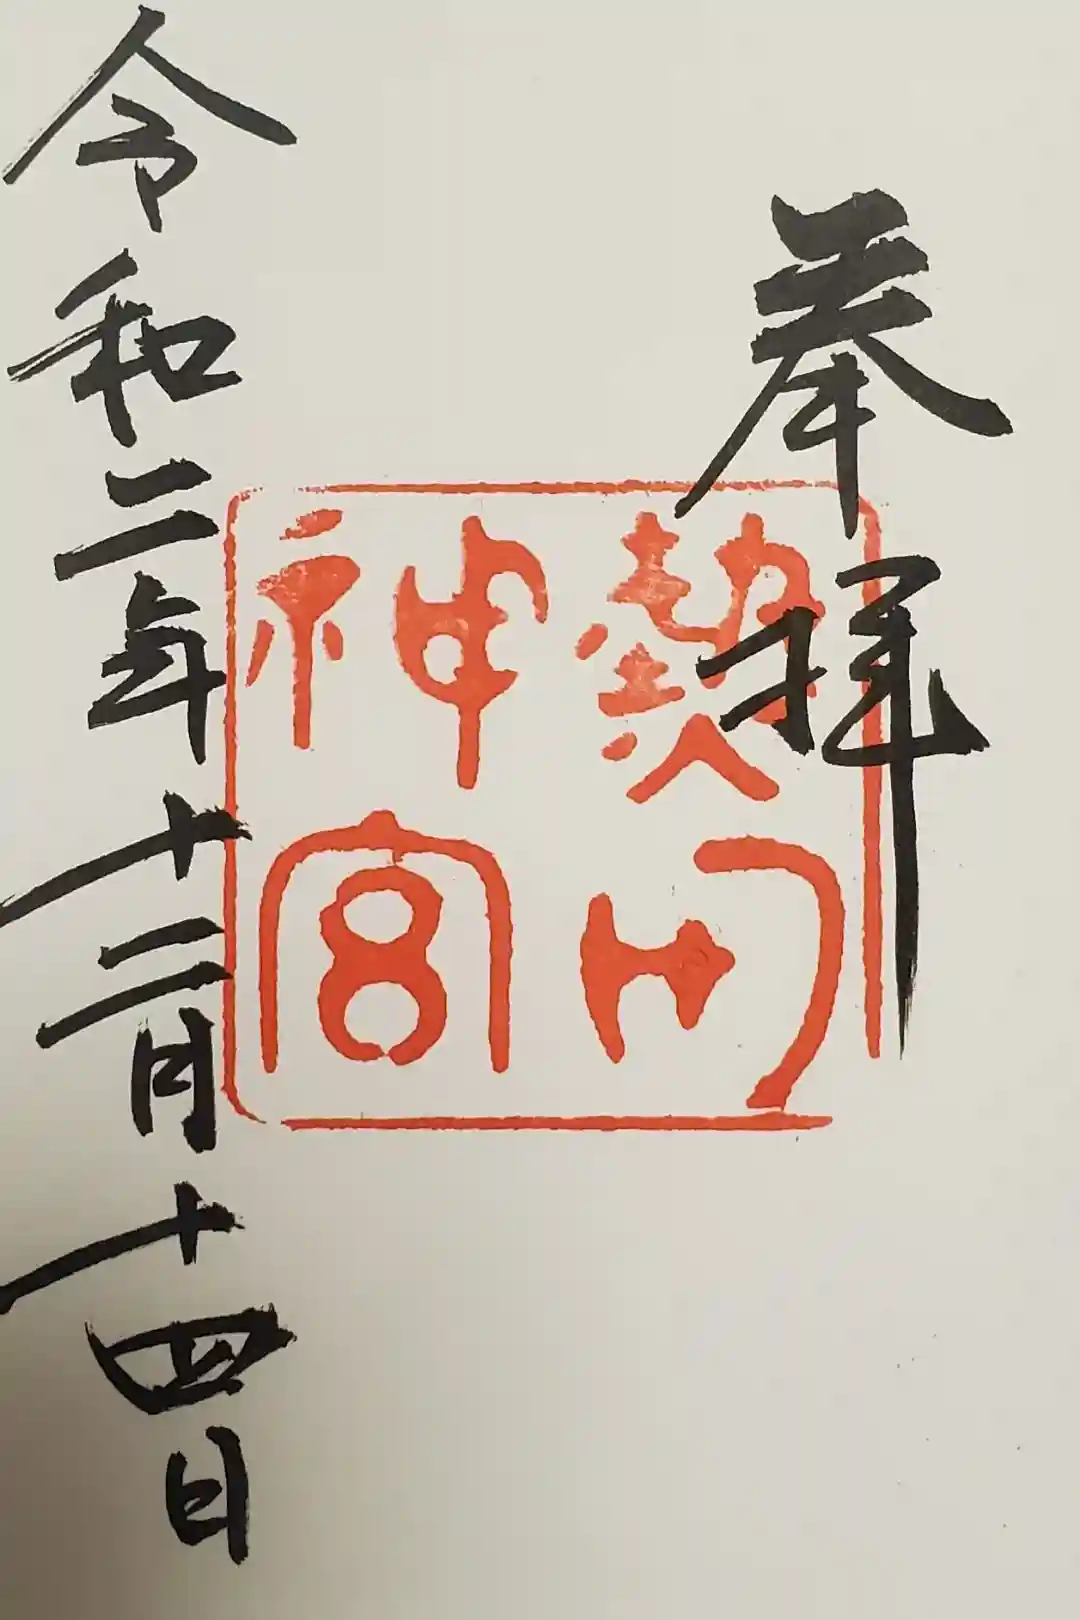 奉拝
熱田神宮
令和二年十二月十四日